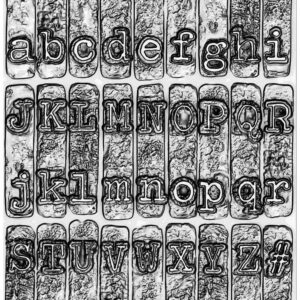 abcdefghi
JKLMNOPQR
jklmnopqr
STUVWXYZ#